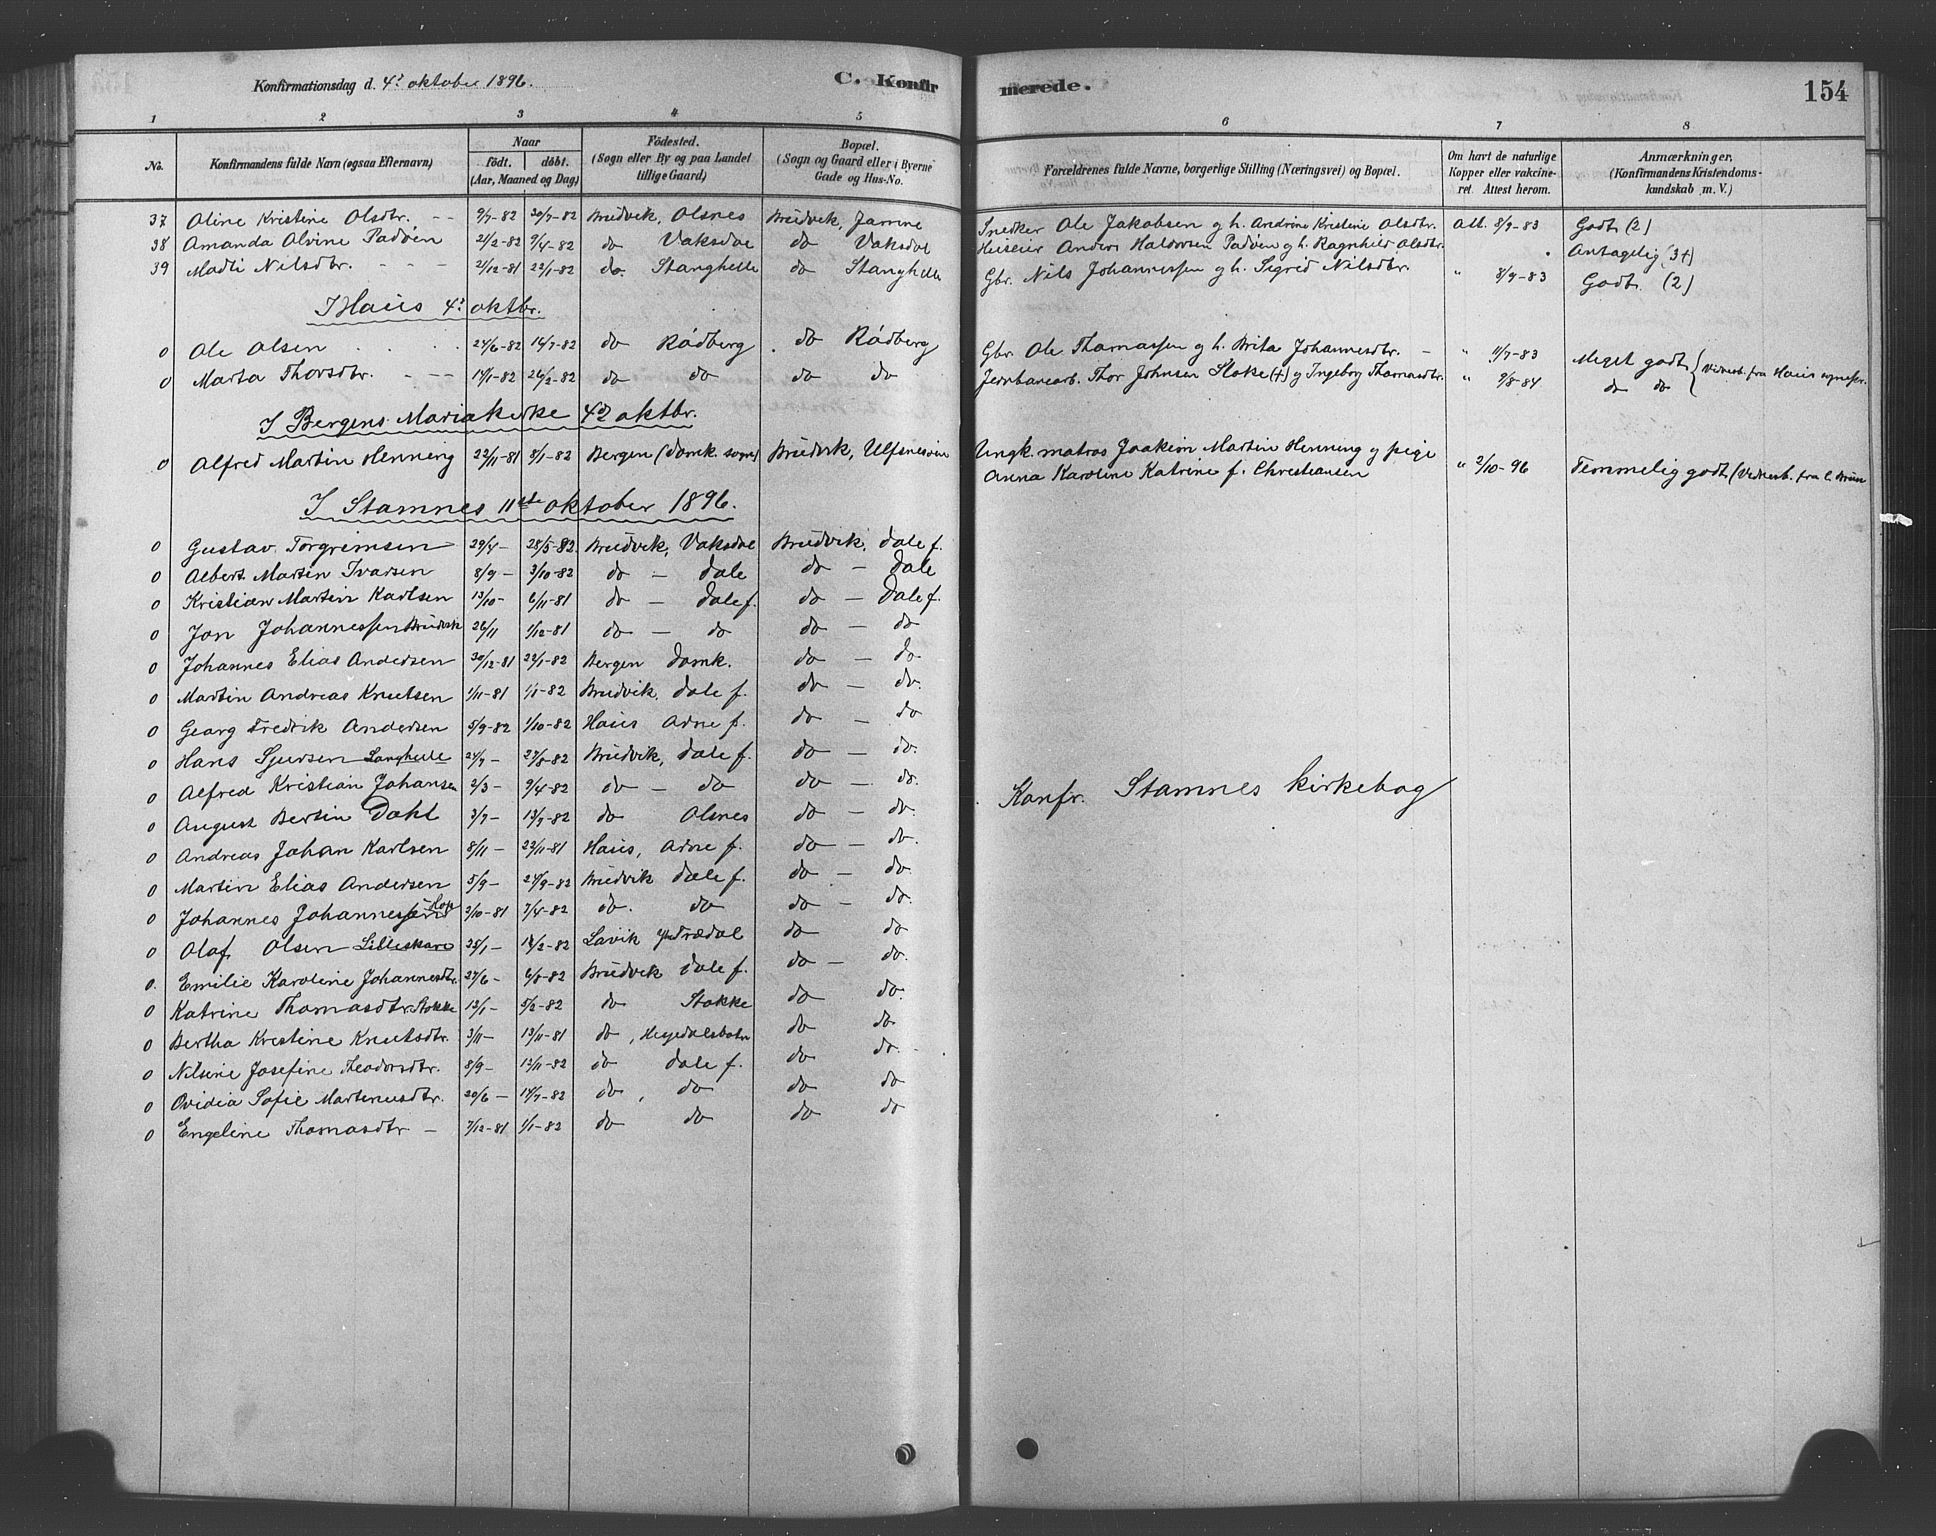 Konfirmationsdag d. 4de oktober 1896. C. Konfirmerede. 154
1 2 3 4 5 6 7 8
No. Konfirmandens fulde Navn (ogsaa Efternavn) Naar födt. döbt. (Aar, Maaned og Dag) Födested. (Sogn eller By og paa Landet tillige Gaard) Bopæl. (Sogn og Gaard eller i Byerne Gade og Hus-No. Forældrenes fulde Navne, borgerlige Stilling (Næringsvei) og Bopæl. Om havt de naturlige Kopper eller vakcineret. Attest herom. Anmærkninger, (Konfirmandens Kristendomskundskab m. V.)
37 Oline Kristine Olsdtr. 9/7-82 30/7-82 Brudvik, Olsnes Brudvik, Jamne Snedker Ole Jakobsen og h. Andrine Kristine Olsdtr. Att. 8/9-83 Godt (2)
38 Amanda Alvine Padöen 21/2-82 9/4-82 do Vaksdal do Vaksdal Huseier Anders Haldorsen Padöen og h. Ragnhild Olsdtr. Antagelig (3+)
39 Madli Nilsdtr. 2/12-81 22/1-82 do. Stanghelle do Stanghelle Gbr. Nils Johannessen og h. Sigrid Nilsdtr. " 8/9-83 Godt (2)
I Haus 4de oktbr.
0 Ole Olsen 24/6-82 16/7-82 do Rödberg do Rödberg Gbr. Ole Thomassen og h. Brita Johannesdtr. " 11/7-83 Meget godt
0 Marta Thorsdtr. 17/1-82 26/2-82 do do do do Jernbanearb. Thor Johnsen Stoke (+) og Ingeborg Thomasdtr. " 9/8-84 do do { Vidnesb. fra Haus sognepr.
I Bergens Mariakirke 4de oktbr.
0 Alfred Martin Henning 22/11-81 8/1-82 Bergen (Domk. sogn) Brudvik, Ulfsnesöen Ungk. matros Joakim Martin Henning og pige
Anna Karoline Katrine f. Christiansen " 2/10-96 Temmelig godt (Vidnesb. fra C. Bruun
I Stamnes 11te oktober 1896.
0 Gustav Torgrimsen 29/4- 28/5-82 Brudvik, Vaksdal Brudvik, Dale f.
0 Albert Martin Ivarsen 8/9- 3/10-82 do - Dale do - Dale
0 Kristian Martin Karlsen 13/10- 6/11-81 do - Dale f. do - Dale f.
0 Jon Johannessen Brudvik 26/11 1/12-81 do - do do - do
0 Johannes Elias Andersen 30/12-81 22/1-82 Bergen Domk. do - do
0 Martin Andreas Knutsen 1/11-81 1/1-82 Brudvik, Dale f. do - do.
0 Georg Fredrik Andersen 5/9-82 1/10-82 Haus Arne f. do - do
0 Hans Sjursen Langhelle 24/7- 27/8-82 Brudvik, Dale f. do - do.
0 Alfred Kristian Johansen 2/3- 9/4-82 do - do do - do.
Konfr. Stamnes kirkebog
0 August Bertin Dahl 3/7- 13/7-82 do Olsnes do - do.
0 Andreas Johan Karlsen 8/11- 22/11-81 Haus, Arne f. do - do.
0 Martin Elias Andersen 5/9- 24/9-82 Brudvik Dale f. do - do.
0 Johannes Johannessen 2/10-81 7/4-82 do. do do - do.
0 Olaf Olsen Lilleskare 25/1- 12/2-82 Lavik Ytre Trædal do do
0. Emilie Karoline Johannesdtr. 27/6- 6/8-82 Brudvik Dale f. do - do.
0 Katrine Thomasdtr. Stokke 12/1- 5/2-82 do Stokke do do.
0 Bertha Kristine Knutsdtr. 3/11- 13/11-81 do, Hesjedalsbotn do do
0 Nilsine Josefine Theodorsdtr. 8/9- 12/11-82 do Dale f. do do.
0 Ovidia Sofie Martinusdtr. 20/6- 14/7-82 do, do do do
0 Engeline Thomasdtr - 7/12-81 1/1-82 do do do do